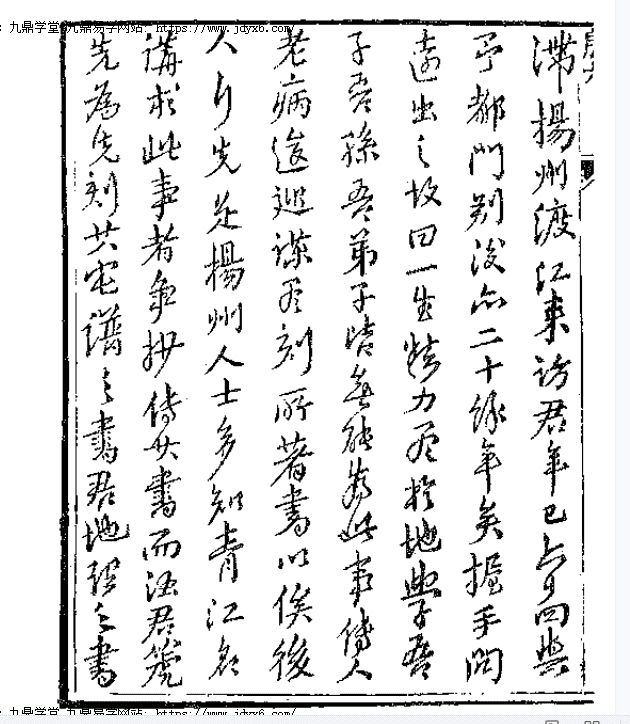 : 九鼎学堂 九鼎易学网站: https://www.jdyx6.com/
滯揚州渡江來訪君年已六十回與
予都門別後亦二十餘年矣握手問
遠出之故曰一生精力盡於地與子吾
子吾孫吾弟子皆無能為此事傳人
老病返迴謀盡刻所著書以俟後
人行先是揚州人士多知青江名
講求此事者爭抄傳其書而汪君箎
先為先刻其宅譜之書君地理之書
: 九鼎学堂 九鼎易学网站: https://www.jdyx6.com/